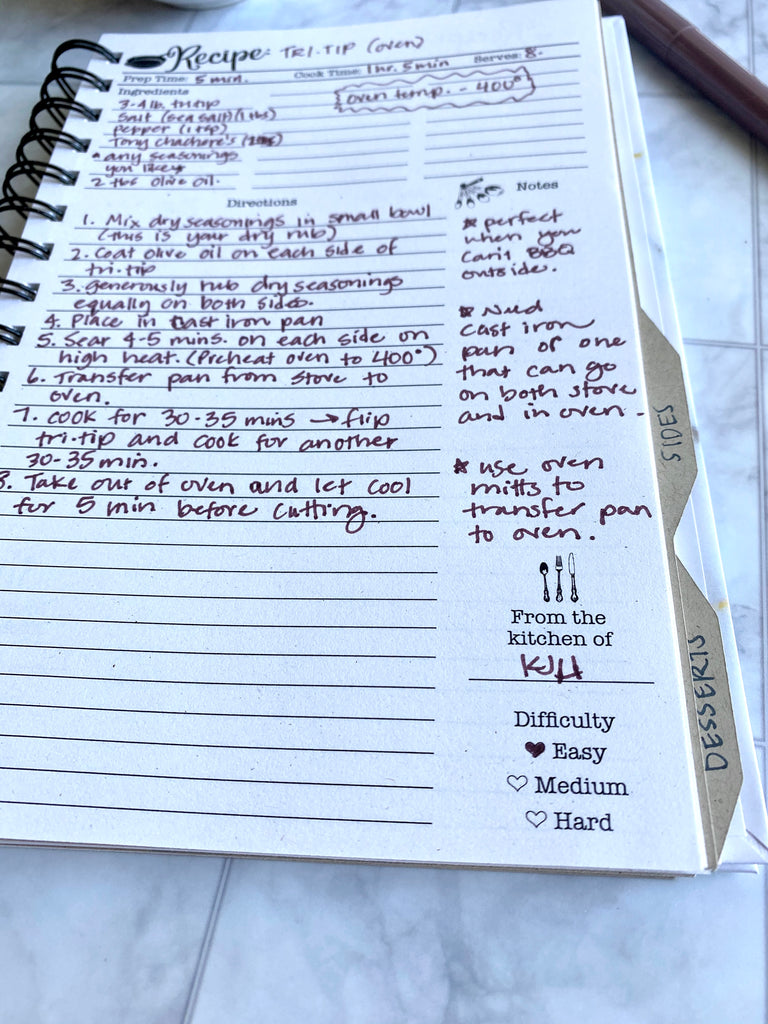 Recipe: TRI-TIP (oven)
Prep Time: 5 min. Cook Time: 1 hr. 5 min Serves: 8.
Ingredients
oven temp. - 400°
3-4 lb. tri tip
Salt (sea salt) (1 tbs)
pepper (1 tsp)
Tony Chachere's
* any seasonings
you like
2 tbs olive oil.
Directions
1. Mix dry seasonings in small bowl
(this is your dry rub)
2. Coat olive oil on each side of
tri-tip
3. Generously rub dry seasonings
equally on both sides.
4. Place in cast iron pan
5. Sear 4-5 mins. on each side on
high heat. (Preheat oven to 400°)
6. Transfer pan from stove to
oven.
7. Cook for 30-35 mins → flip
tri-tip and cook for another
30-35 min.
8. Take out of oven and let cool
for 5 min before cutting.
Notes
* perfect
when you
can't BBQ
outside.
* Need
cast iron
pan or one
that can go
on both stove
and in oven.
* use oven
mitts to
transfer pan
to oven.
From the
kitchen of
KJH
Difficulty
♥ Easy
♡ Medium
♡ Hard
SIDES
DESSERTS